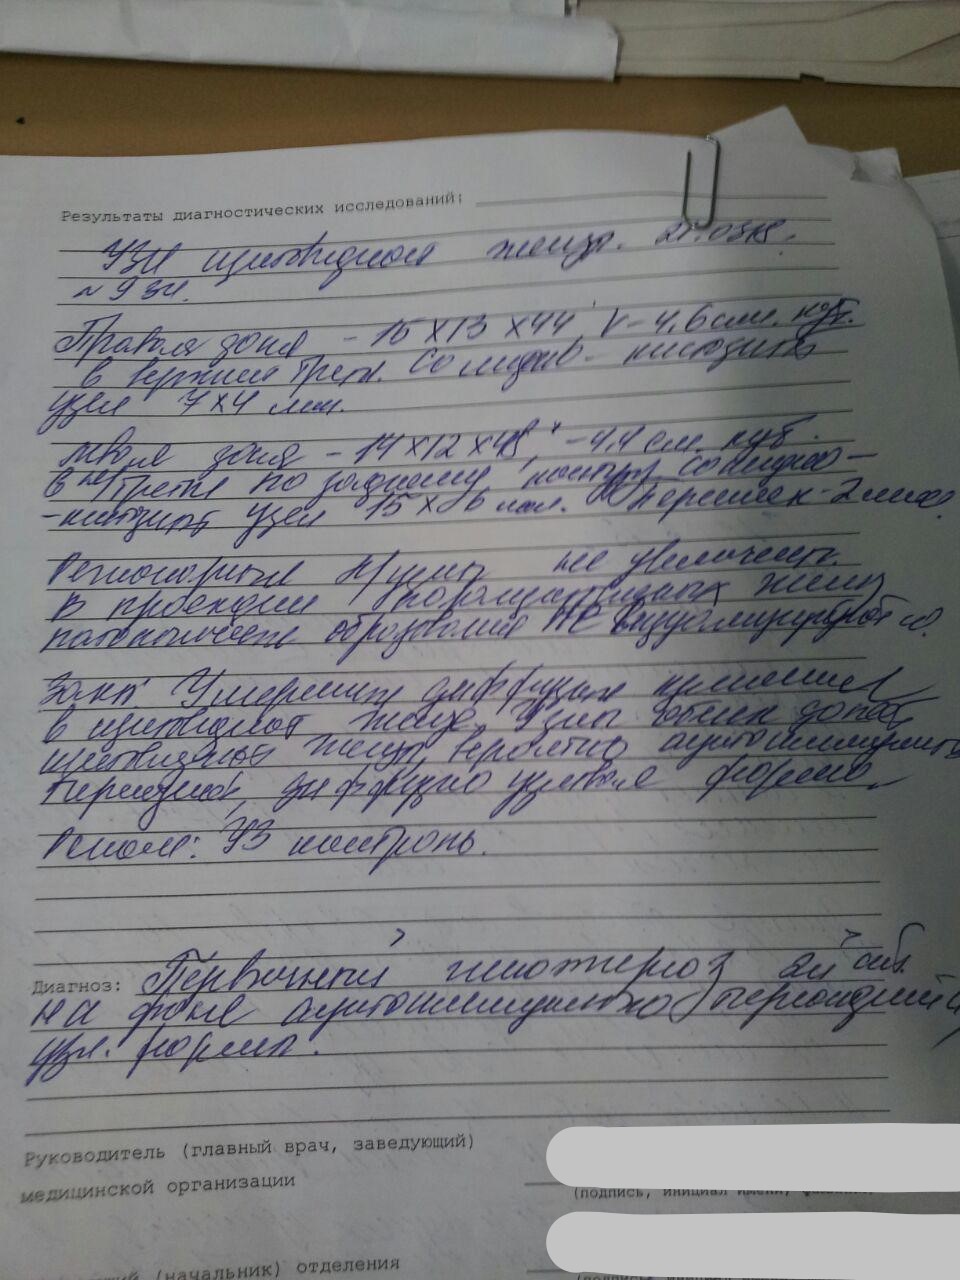 Результаты диагностических исследований:
УЗИ щитовидной железы.
Правая доля - 15 х 13 х 44, V - 4,6 см. куб.
в верхней трети. Солидно - кистозный
узел 7 х 4 мм.
Левая доля - 14 х 12 х 48, - 4,4 см. куб.
в трети по заднему контуру солидно -
- кистозный узел 15 х 6 мм. Перешеек - 2 мм.
Регионарные л/узлы не увеличены.
В проекции паращитовидных желез
патологические образования не визуализируются.
Закл: Умеренные диффузные изменения
в щитовидной железе. Узлы обеих долей
щитовидной железы, вероятно аутоиммунный
тиреоидит, диффузно узловая форма.
Реком: УЗ контроль.
Диагноз: Первичный гипотиреоз
на фоне аутоиммунного тиреоидита,
узл. форма.
Руководитель (главный врач, заведующий)
медицинской организации
(подпись, инициал имени,
(начальник) отделения